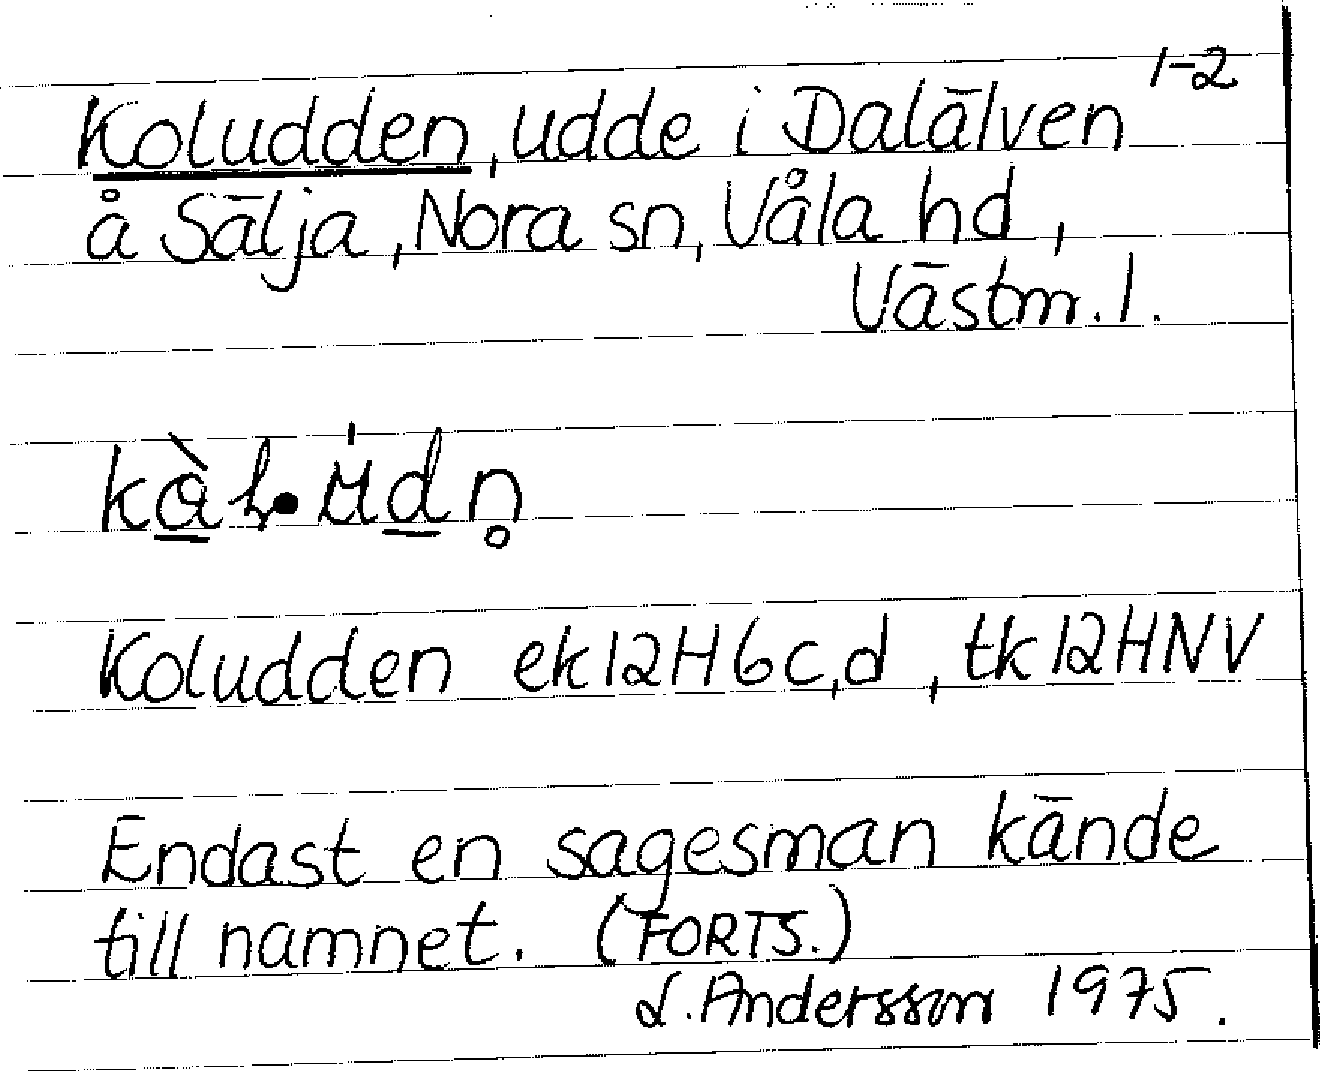 1-2
Koludden, udde i Dalälven
å Sälja, Nora sn, Våla hd,
Västm. l.
Koludden ek 12H6c,d, tk 12HNV
Endast en sagesman kände
till namnet. (FORTS.)
L. Andersson 1975.